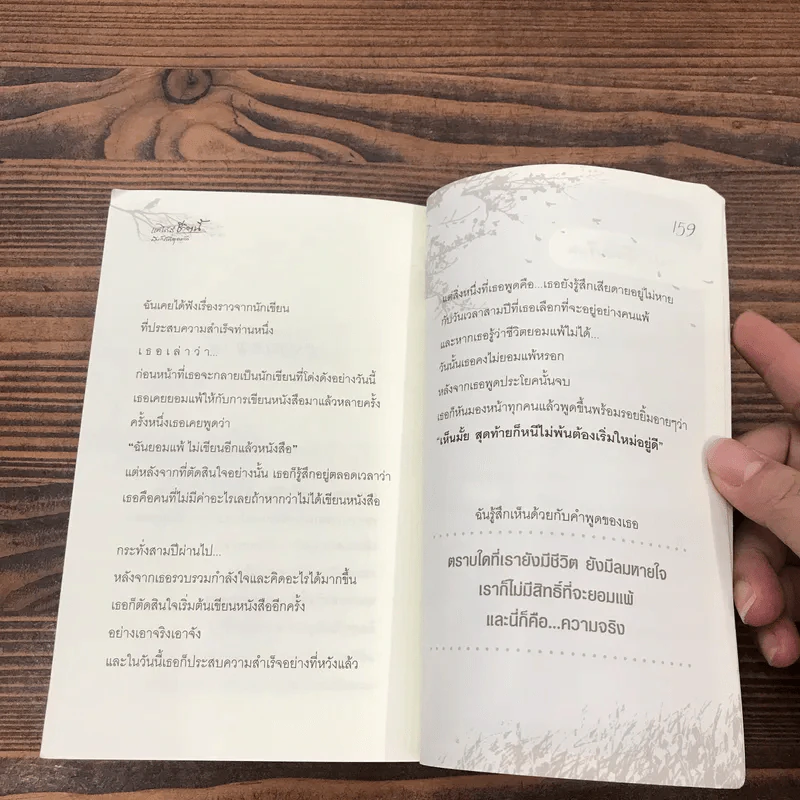 ฉันเคยได้ฟังเรื่องราวจากนักเขียน
ที่ประสบความสำเร็จท่านหนึ่ง
เ ธ อ เ ล่ า ว่ า...
ก่อนหน้าที่เธอจะกลายเป็นนักเขียนที่โด่งดังอย่างวันนี้
เธอเคยยอมแพ้ให้กับการเขียนหนังสือมาแล้วหลายครั้ง
ครั้งหนึ่งเธอเคยพูดว่า
"ฉันยอมแพ้ ไม่เขียนอีกแล้วหนังสือ"
แต่หลังจากที่ตัดสินใจอย่างนั้น เธอก็รู้สึกอยู่ตลอดเวลาว่า
เธอคือคนที่ไม่มีค่าอะไรเลยถ้าหากว่าไม่ได้เขียนหนังสือ
กระทั่งสามปีผ่านไป...
หลังจากเธอรวบรวมกำลังใจและคิดอะไรได้มากขึ้น
เธอก็ตัดสินใจเริ่มต้นเขียนหนังสืออีกครั้ง
อย่างเอาจริงเอาจัง
และในวันนี้เธอก็ประสบความสำเร็จอย่างที่หวังแล้ว
159
แต่สิ่งหนึ่งที่เธอพูดคือ...เธอยังรู้สึกเสียดายอยู่ไม่หาย
กับวันเวลาสามปีที่เธอเลือกที่จะอยู่อย่างคนแพ้
และหากเธอรู้ว่าชีวิตยอมแพ้ไม่ได้...
วันนั้นเธอคงไม่ยอมแพ้หรอก
หลังจากเธอพูดประโยคนั้นจบ
เธอก็หันมองหน้าทุกคนแล้วพูดขึ้นพร้อมรอยยิ้มอายๆว่า
"เห็นมั้ย สุดท้ายก็หนีไม่พ้นต้องเริ่มใหม่อยู่ดี"
ฉันรู้สึกเห็นด้วยกับคำพูดของเธอ
ตราบใดที่เรายังมีชีวิต ยังมีลมหายใจ
เราก็ไม่มีสิทธิ์ที่จะยอมแพ้
และนี่ก็คือ...ความจริง